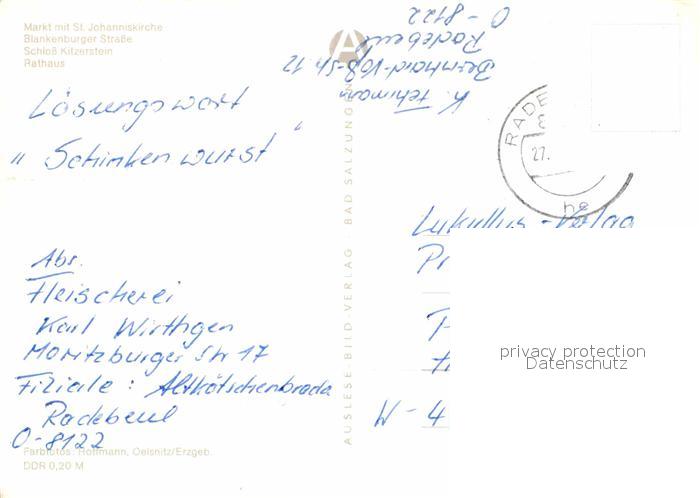 Markt mit St. Johanniskirche
Blankenburger Straße
Schloß Kitzerstein
Rathaus
Lösungswort
" Schinkenwurst "
Abs.
Fleischerei
Karl Wirthgen
Moritzburger Str 17
Filiale : Altkötschenbroda
Radebeul
O-8122
Farbfotos: Hoffmann, Oelsnitz/Erzgeb.
DDR 0,20 M
AUSLESE BILD VERLAG BAD SALZUNGEN
A
K. Fehrmann
Bernhard-Voß-Str 12
Radebeul
O-8122
RADE
8
27.
be
Lukullus-Verlag
W-4
privacy protection
Datenschutz